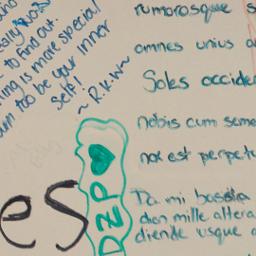 ally was
to find out.
ing is more special
than too be your inner
self!
~ R.K.W ~
rumorosque s
omnes unius a
Soles occider
nobis cum seme
nox est perpetu
Da mi basia
dien mille altera
diende usque a
es
DZP